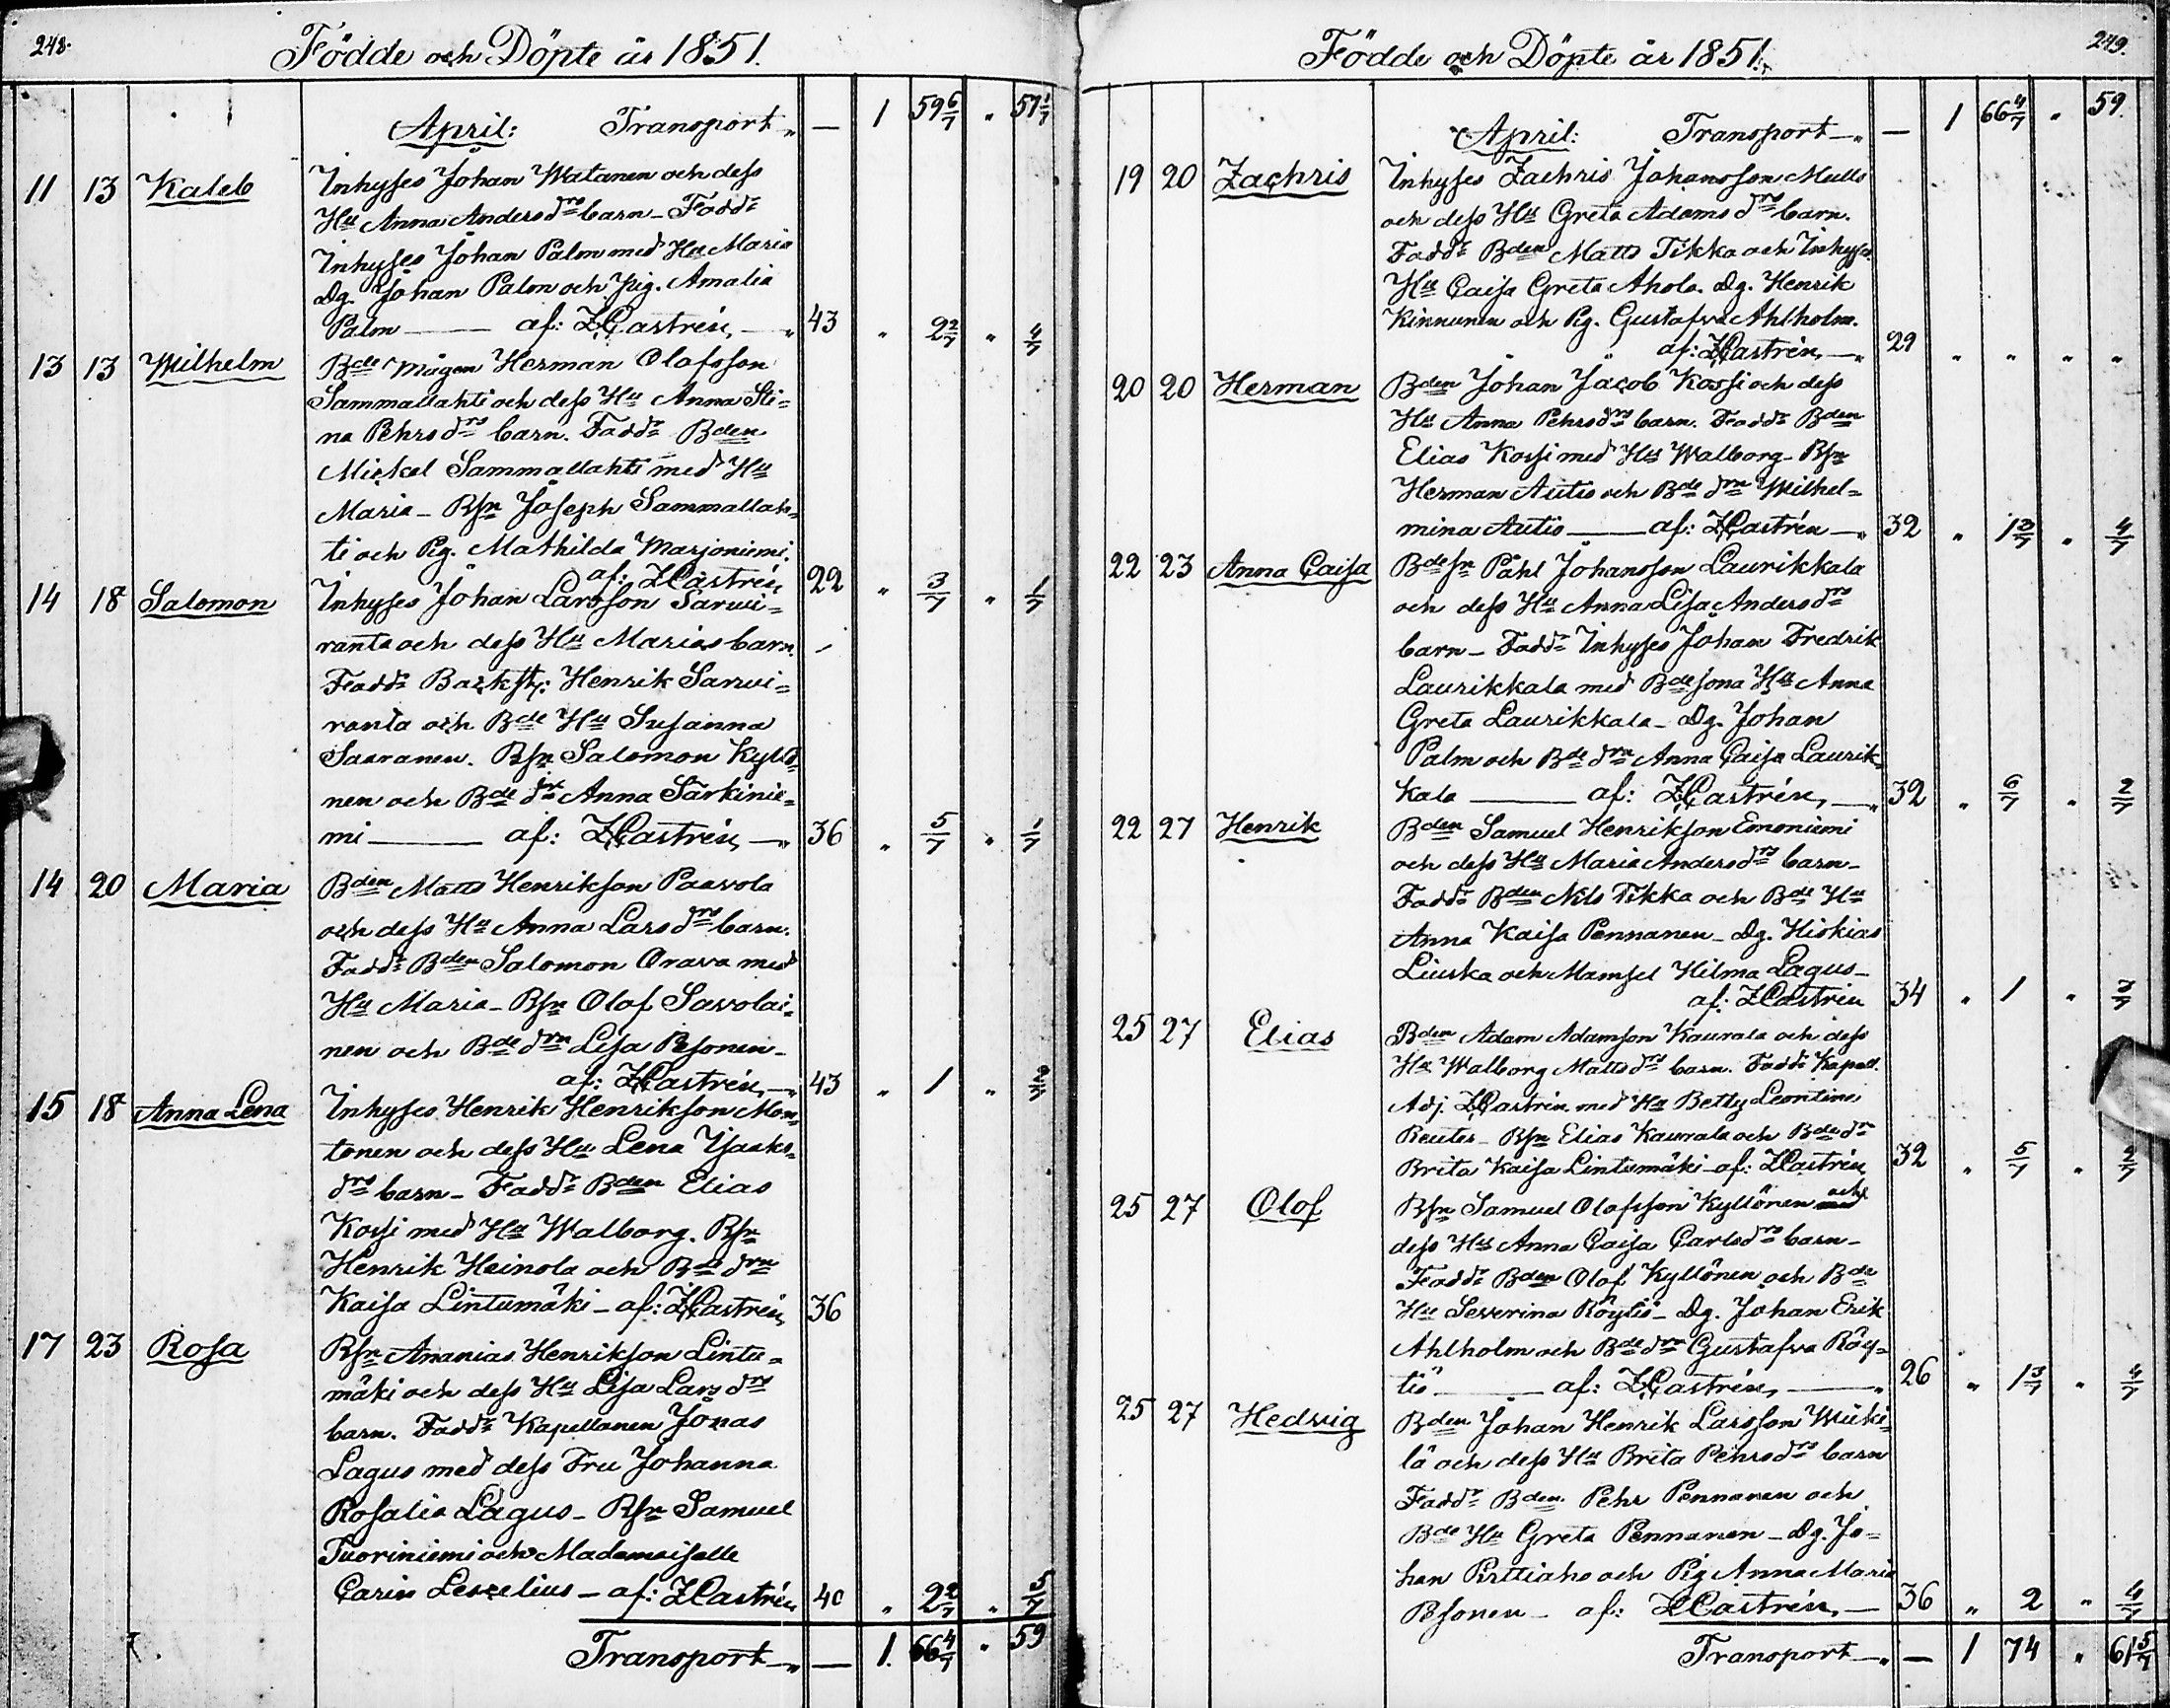 248.
Födde och Döpte år 1851.
April: Transport „ — 1 59 6/7 „ 57 1/7
11 13 Kaleb Inhyses Johan Watanen och dess
Hu Anna Anders drs barn – Fadd:
Inhyses Johan Palm med Hu Maria
Dg. Johan Palm och pig. Amalia
Palm — af: ZCastrén, — „ 43 „ 2 2/7 „ 4/7
13 13 Wilhelm Bde mågen Herman Olofsson
Sammallahti och dess Hu Anna Sti=
na Pehrs drs barn. Fadd: Bden
Mickel Sammallahti med Hu
Maria – Bsn Joseph Sammallah=
ti och Pig. Mathilda Marjoniemi.
af: ZCastrén 22 „ 3/7 „ 1/7
14 18 Salomon Inhyses Johan Larsson Sarwi=
ranta och dess Hu Marias barn.
Fadd: Backst: Henrik Sarwi=
ranta och Bde Hu Susanna
Saaranen. Bsn Salomon Kyllö=
nen och Bde dr Anna Särkinie=
mi — af: ZCastrén, — „ 36 „ 5/7 „ 1/7
14 20 Maria Bden Matts Henrikson Paavola
och dess Hu Anna Lars drs barn.
Fadd: Bden Salomon Orava med
Hu Maria – Bsn Olof Savolai=
nen och Bde drn Lisa Pesonen –
af: ZCastrén, — „ 43 „ 1 „
15 18 Anna Lena Inhyses Henrik Henrikson Mon=
tonen och dess Hu Lena Ysaks=
drs barn – Fadd: Bden Elias
Kossi med Hu Walborg. Bsn
Henrik Heinola och Bde drn
Kaisa Lintumäki – af: ZCastrén, 36
17 23 Rosa Bsn Ananias Henrikson Lintu=
mäki och dess Hu Lisa Lars drs
barn. Fadd: Kapellanen Jonas
Lagus med dess Fru Johanna
Rosalia Lagus – Bsn Samuel
Tuoriniemi och Mademoiselle
Carin Lescelius – af: ZCastrén 40 „ 2 2/7 „ 5/7
Transport — „ — 1. 66 4/7 „ 59
249.
Födde och Döpte år 1851.
April: Transport — „ — 1 66 4/7 „ 59.
19 20 Zachris Inhyses Zachris Johansson Mulls
och dess Hu Greta Adams drs barn.
Fadd: Bden Matts Tikka och Inhyses
Hu Caisa Greta Ahola. Dg. Henrik
Kinnunen och Pig. Gustafva Ahlholm.
af: ZCastrén, — „ 29 „ „ „ „
20 20 Herman Bden Johan Jacob Kossi och dess
Hu Anna Pehrs drs barn. Fadd: Bden
Elias Kossi med Hu Walborg – Bsn
Herman Autio och Bde drn Wilhel=
mina Autio — af: ZCastrén — „ 32 „ 1 3/7 „ 4/7
22 23 Anna Caisa Bde sn Påhl Johansson Laurikkala
och dess Hu Anna Lisa Anders drs
barn – Fadd: Inhyses Johan Fredrik
Laurikkala med Bde sona Hu Anna
Greta Laurikkala – Dg. Johan
Palm och Bde drn Anna Caisa Laurik=
kala — af: ZCastrén, — „ 32 „ 6/7 „ 2/7
22 27 Henrik Bden Samuel Henrikson Emoniemi
och dess Hu Maria Anders drs barn –
Fadd: Bden Nils Tikka och Bde Hu
Anna Kaisa Pennanen – Dg. Hiskias
Liuska och Mamsel Hilma Lagus –
af: ZCastrén 34 „ 1 „ 3/7
25 27 Elias Bden Adam Adamson Kaurala och dess
Hu Walborg Matts drs barn. Fadd: Kapell.
Adj. ZCastrén med Hu Betty Leontine
Reuter – Bsn Elias Kaurala och Bde dr
Brita Kaisa Lintumäki – af: ZCastrén, 32 „ 5/7 „ 2/7
25 27 Olof Bsn Samuel Olofsson Kyllönen och
dess Hu Anna Caisa Carls drs barn –
Fadd: Bden Olof Kyllönen och Bde
Hu Severina Röytiö – Dg. Johan Erik
Ahlholm och Bde drn Gustafva Röy=
tiö — af: ZCastrén, — „ 26 „ 1 3/7 „ 4/7
25 27 Hedvig Bden Johan Henrik Larsson Wiiki=
lä och dess Hu Brita Pehrs drs barn
Fadd: Bden. Pehr Pennanen och
Bde Hu Greta Pennanen – Dg. Jo=
han Pirttiaho och Pig Anna Maria
Pesonen – af: ZCastrén, — 36 „ 2 „ 4/7
Transport — „ — 1 74 „ 61 5/7